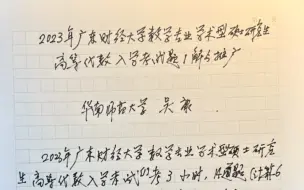 2023年广东财经大学数学专业学术型硕士研究生
高等代数入学考试题1解与推广
华南师范大学 吴康
2023年广东财经大学数学专业学术型硕士研究
生高等代数入学考试[1]考3小时,